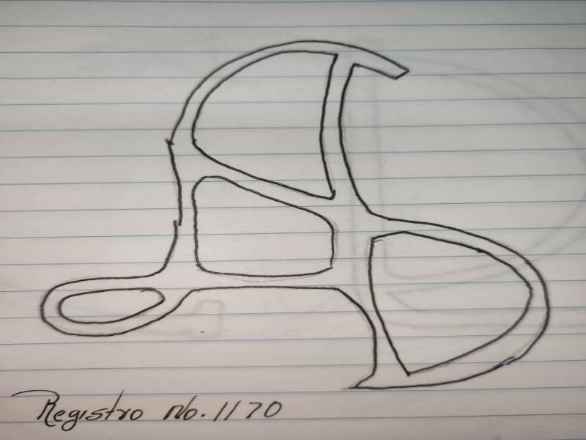 Registro No. 1170